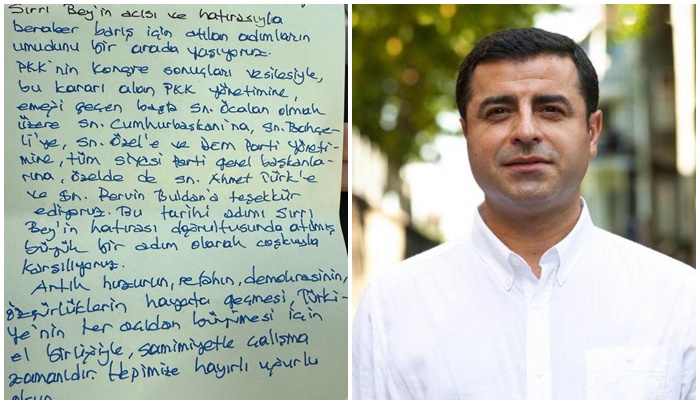 Sırrı Bey'in acısı ve hatırasıyla
beraber barış için atılan adımların
umudunu bir arada yaşıyoruz.
PKK'nin kongre sonuçları vesilesiyle,
bu kararı alan PKK yönetimine,
emeği geçen başta Sn. Öcalan olmak
üzere Sn. Cumhurbaşkanı'na, Sn. Bahçe-
li'ye, Sn. Özel'e ve DEM Parti yöneti-
mine, tüm siyasi parti genel başkanla-
rına, özelde de Sn. Ahmet Türk'e
ve Sn. Pervin Buldan'a teşekkür
ediyoruz. Bu tarihi adımı Sırrı
Bey'in hatırası doğrultusunda atılmış
büyük bir adım olarak coşkuyla
karşılıyoruz.
Artık huzurun, refahın, demokrasinin,
özgürlüklerin hayata geçmesi, Türki-
ye'nin her açıdan büyümesi için
el birliğiyle, samimiyetle çalışma
zamanıdır. Hepimize hayırlı uğurlu
olsun